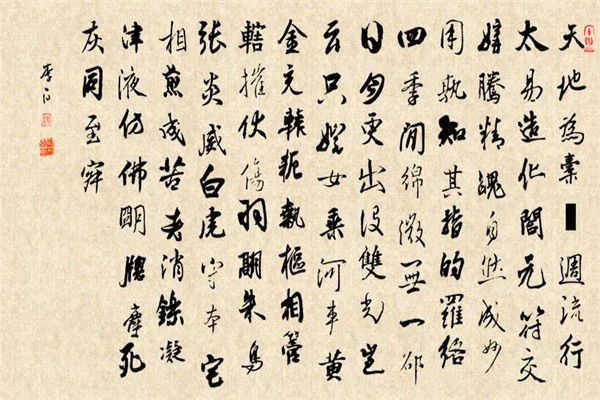 天地為橐週流行
太易造化閤元符交
媾騰精魄自然成妙
用孰知其指的羅絡
四季間綿微無一郤
日月更出没雙光豈
云只姹女乘河車黄
金充轅軛執樞相管
轄摧伏傷羽翮朱鳥
張炎威白虎守本宅
相煎成苦老消鑠凝
津液仿佛明牕塵死
灰同至寂
李白